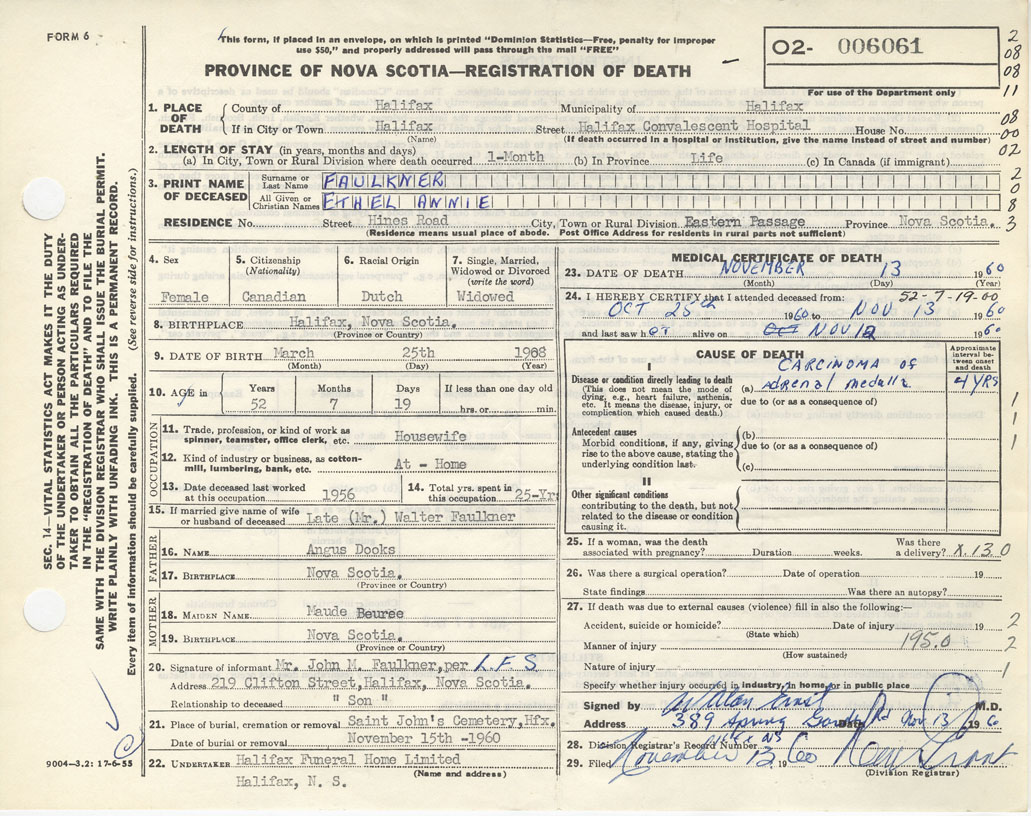 FORM 6
This form, if placed in an envelope, on which is printed "Dominion Statistics—Free, penalty for improper
use $50," and properly addressed will pass through the mail "FREE"
PROVINCE OF NOVA SCOTIA—REGISTRATION OF DEATH
02- 006061
For use of the Department only
2
08
08
11
08
00
02
2
0
8
3
1. PLACE OF DEATH
County of Halifax Municipality of Halifax
If in City or Town Halifax Street Halifax Convalescent Hospital House No.
(Name) (If death occurred in a hospital or institution, give the name instead of street and number)
2. LENGTH OF STAY (in years, months and days)
(a) In City, Town or Rural Division where death occurred 1-Month (b) In Province Life (c) In Canada (if immigrant)
3. PRINT NAME OF DECEASED
Surname or Last Name FAULKNER
All Given or Christian Names ETHEL ANNIE
RESIDENCE No. Street Hines Road City, Town or Rural Division Eastern Passage Province Nova Scotia.
(Residence means usual place of abode. Post Office Address for residents in rural parts not sufficient)
4. Sex
Female
5. Citizenship
(Nationality)
Canadian
6. Racial Origin
Dutch
7. Single, Married,
Widowed or Divorced
(write the word)
Widowed
8. BIRTHPLACE Halifax, Nova Scotia.
(Province or Country)
9. DATE OF BIRTH March 25th 1908
(Month) (Day) (Year)
10. AGE in
Years Months Days If less than one day old
52 7 19 hrs. or min.
OCCUPATION
11. Trade, profession, or kind of work as
spinner, teamster, office clerk, etc. Housewife
12. Kind of industry or business, as cotton-
mill, lumbering, bank, etc. At - Home
13. Date deceased last worked
at this occupation 1956
14. Total yrs. spent in
this occupation 25-Yr
15. If married give name of wife
or husband of deceased Late (Mr.) Walter Faulkner
FATHER
16. NAME Angus Dooks
17. BIRTHPLACE Nova Scotia.
(Province or Country)
MOTHER
18. MAIDEN NAME Maude Beuree
19. BIRTHPLACE Nova Scotia.
(Province or Country)
20. Signature of informant Mr. John M. Faulkner, per L.F.S
Address 219 Clifton Street, Halifax, Nova Scotia.
Relationship to deceased " Son "
21. Place of burial, cremation or removal Saint John's Cemetery, Hfx.
Date of burial or removal November 15th -1960
22. UNDERTAKER Halifax Funeral Home Limited
(Name and address)
Halifax, N. S.
MEDICAL CERTIFICATE OF DEATH
23. DATE OF DEATH NOVEMBER 13 1960
(Month) (Day) (Year)
24. I HEREBY CERTIFY that I attended deceased from: 52-7-19-00
OCT 25th 1960 to NOV 13 1960
and last saw er alive on OCT NOV 12 1960
CAUSE OF DEATH
Approximate interval between onset and death
I
Disease or condition directly leading to death
(This does not mean the mode of
dying, e.g., heart failure, asthenia,
etc. It means the disease, injury, or
complication which caused death.)
CARCINOMA OF
(a) adrenal medulla 4 YRS
due to (or as a consequence of)
1
1
1
Antecedent causes
Morbid conditions, if any, giving
rise to the above cause, stating the
underlying condition last.
(b)
due to (or as a consequence of)
(c)
II
Other significant conditions
contributing to the death, but not
related to the disease or condition
causing it.
25. If a woman, was the death
associated with pregnancy? Duration weeks. Was there
a delivery? X.13.0
26. Was there a surgical operation? Date of operation 19
State findings Was there an autopsy?
27. If death was due to external causes (violence) fill in also the following:—
Accident, suicide or homicide? Date of injury 19 2
(State which)
Manner of injury 195.0 2
(How sustained)
Nature of injury 1
Specify whether injury occurred in industry, in home, or in public place
Signed by M.D.
Address 389 Spring Garden Rd Date Nov 13 1960
28. Division Registrar's Record Number
29. Filed November 1960
(Division Registrar)
SEC. 14—VITAL STATISTICS ACT MAKES IT THE DUTY
OF THE UNDERTAKER OR PERSON ACTING AS UNDER-
TAKER TO OBTAIN ALL THE PARTICULARS REQUIRED
IN THE "REGISTRATION OF DEATH" AND TO FILE THE
SAME WITH THE DIVISION REGISTRAR WHO SHALL ISSUE THE BURIAL PERMIT.
WRITE PLAINLY WITH UNFADING INK. THIS IS A PERMANENT RECORD.
Every item of information should be carefully supplied. (See reverse side for instructions.)
9004—3.2: 17-6-55